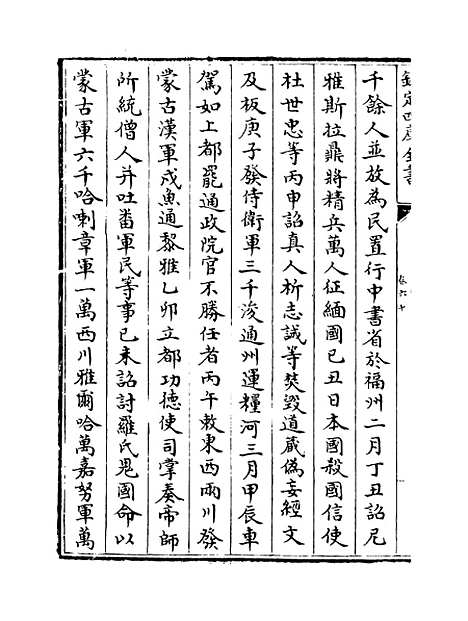 欽定四庫全書
千餘人並放為民置行中書省於福州二月丁丑詔尼
雅斯拉鼎將精兵萬人征緬國已丑日本國殺國信使
杜世忠等丙申詔真人祈志誠等焚毀道藏偽妄經文
及板庚子發侍衛軍三千浚通州運糧河三月甲辰車
駕如上都罷通政院官不勝任者丙午敕東西兩川發
蒙古漢軍戍魚通黎雅乙卯立都功德使司掌奏帝師
所統僧人并吐番軍民等事已未詔討羅氏鬼國命以
蒙古軍六千哈喇章軍一萬西川雅爾哈萬嘉努軍萬